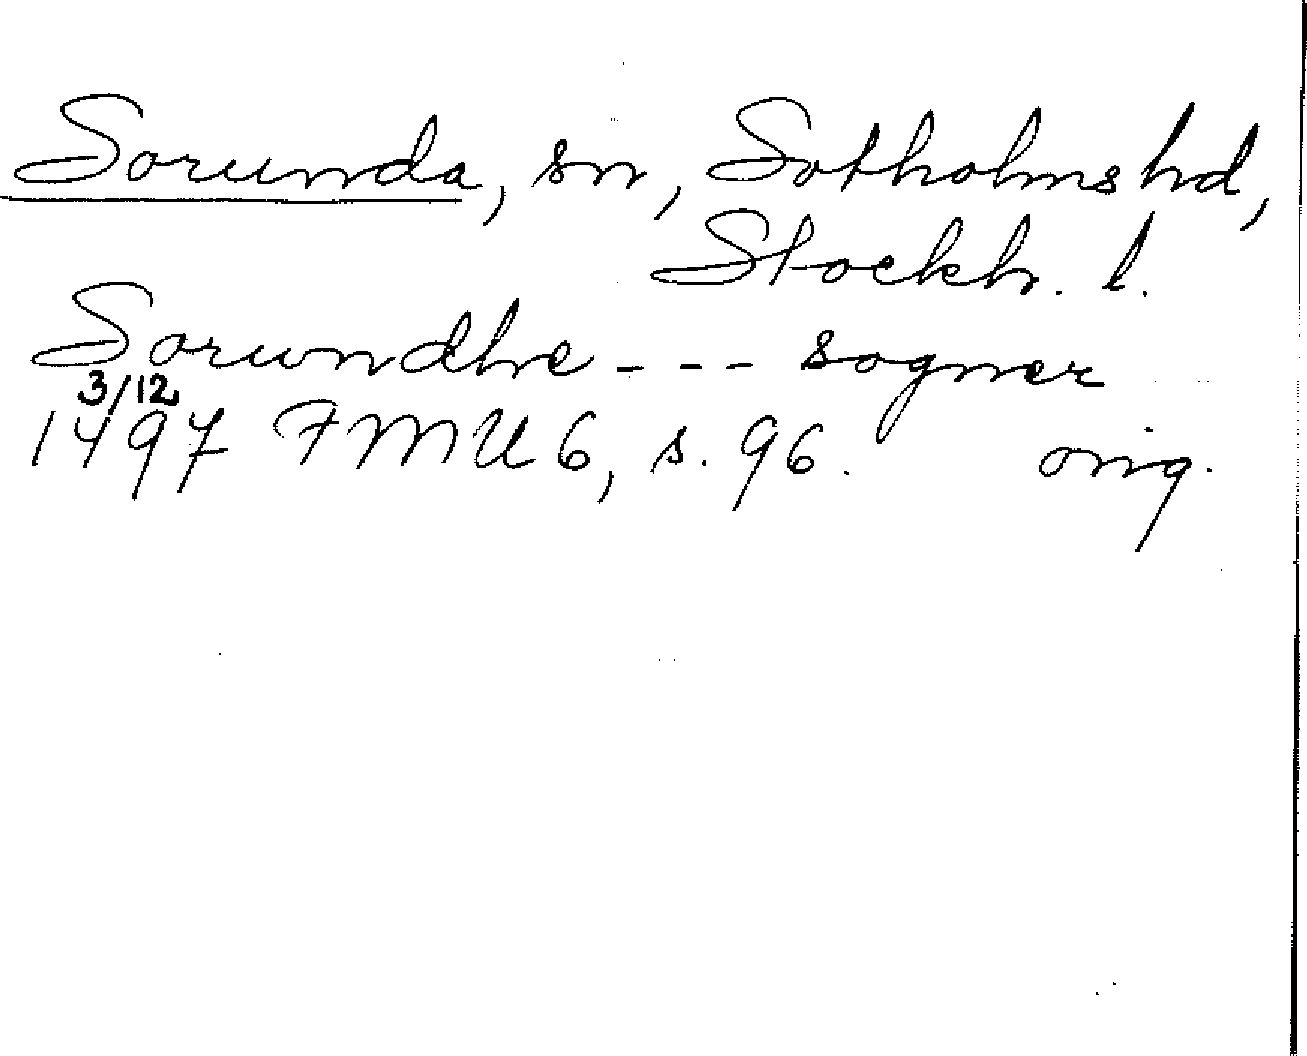 Sorunda, sn, Sotholms hd,
Stockh. l.
Sorundhe - - - sogner
3/12
1497 FMU 6, s. 96. orig.